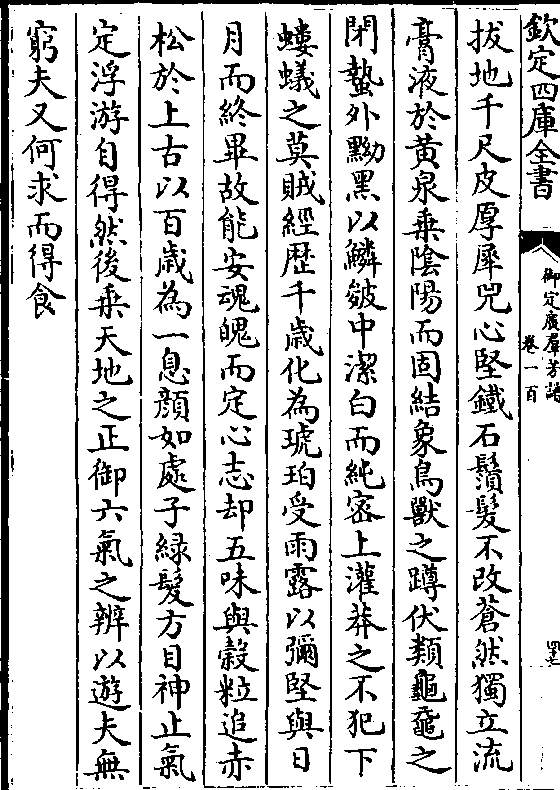 欽定四庫全書
御定廣羣芳譜
卷一百
拔地千尺皮厚犀兕心堅鐵石鬚髮不改蒼然獨立流
膏液於黃泉乗陰陽而固結象鳥獸之蹲伏類龜黿之
閉蟄外黝黑以鱗皴中潔白而純宻上灌莽之不犯下
螻蟻之莫賊經歴千歳化為琥珀受雨露以彌堅與日
月而終畢故能安魂魄而定心志却五味與穀粒追赤
松於上古以百歳為一息顔如處子緑髮方目神止氣
定浮游自得然後乗天地之正御六氣之辨以遊夫無
窮夫又何求而得食